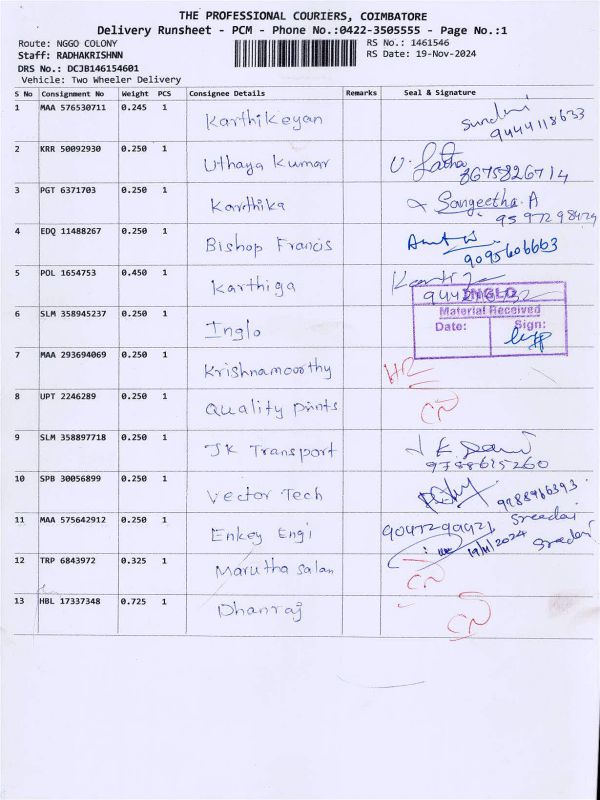 THE PROFESSIONAL COURIERS, COIMBATORE
Delivery Runsheet - PCM - Phone No.:0422-3505555 - Page No.:1
Route: NGGO COLONY RS No.: 1461546
Staff: RADHAKRISHNN RS Date: 19-Nov-2024
DRS No.: DCJB146154601
Vehicle: Two Wheeler Delivery
S No Consignment No Weight PCS Consignee Details Remarks Seal & Signature
1 MAA 576530711 0.245 1 Karthikeyan 9444118633
2 KRR 50092930 0.250 1 Uthaya Kumar 8675826714
3 PGT 6371703 0.250 1 Karthika Sangeetha. A
4 EDQ 11488267 0.250 1 Bishop Francis 9095606663
5 POL 1654753 0.450 1 Karthiga
6 SLM 358945237 0.250 1 Inglo INGLO
Material Received
Date: Sign:
7 MAA 293694069 0.250 1 Krishnamoorthy
8 UPT 2246289 0.250 1 Quality prints
9 SLM 358897718 0.250 1 JK Transport 9788615260
10 SPB 30056899 0.250 1 Vector Tech
11 MAA 575642912 0.250 1 Enkey Engi 19/11/2024
12 TRP 6843972 0.325 1 Marutha salan
13 HBL 17337348 0.725 1 Dhanraj